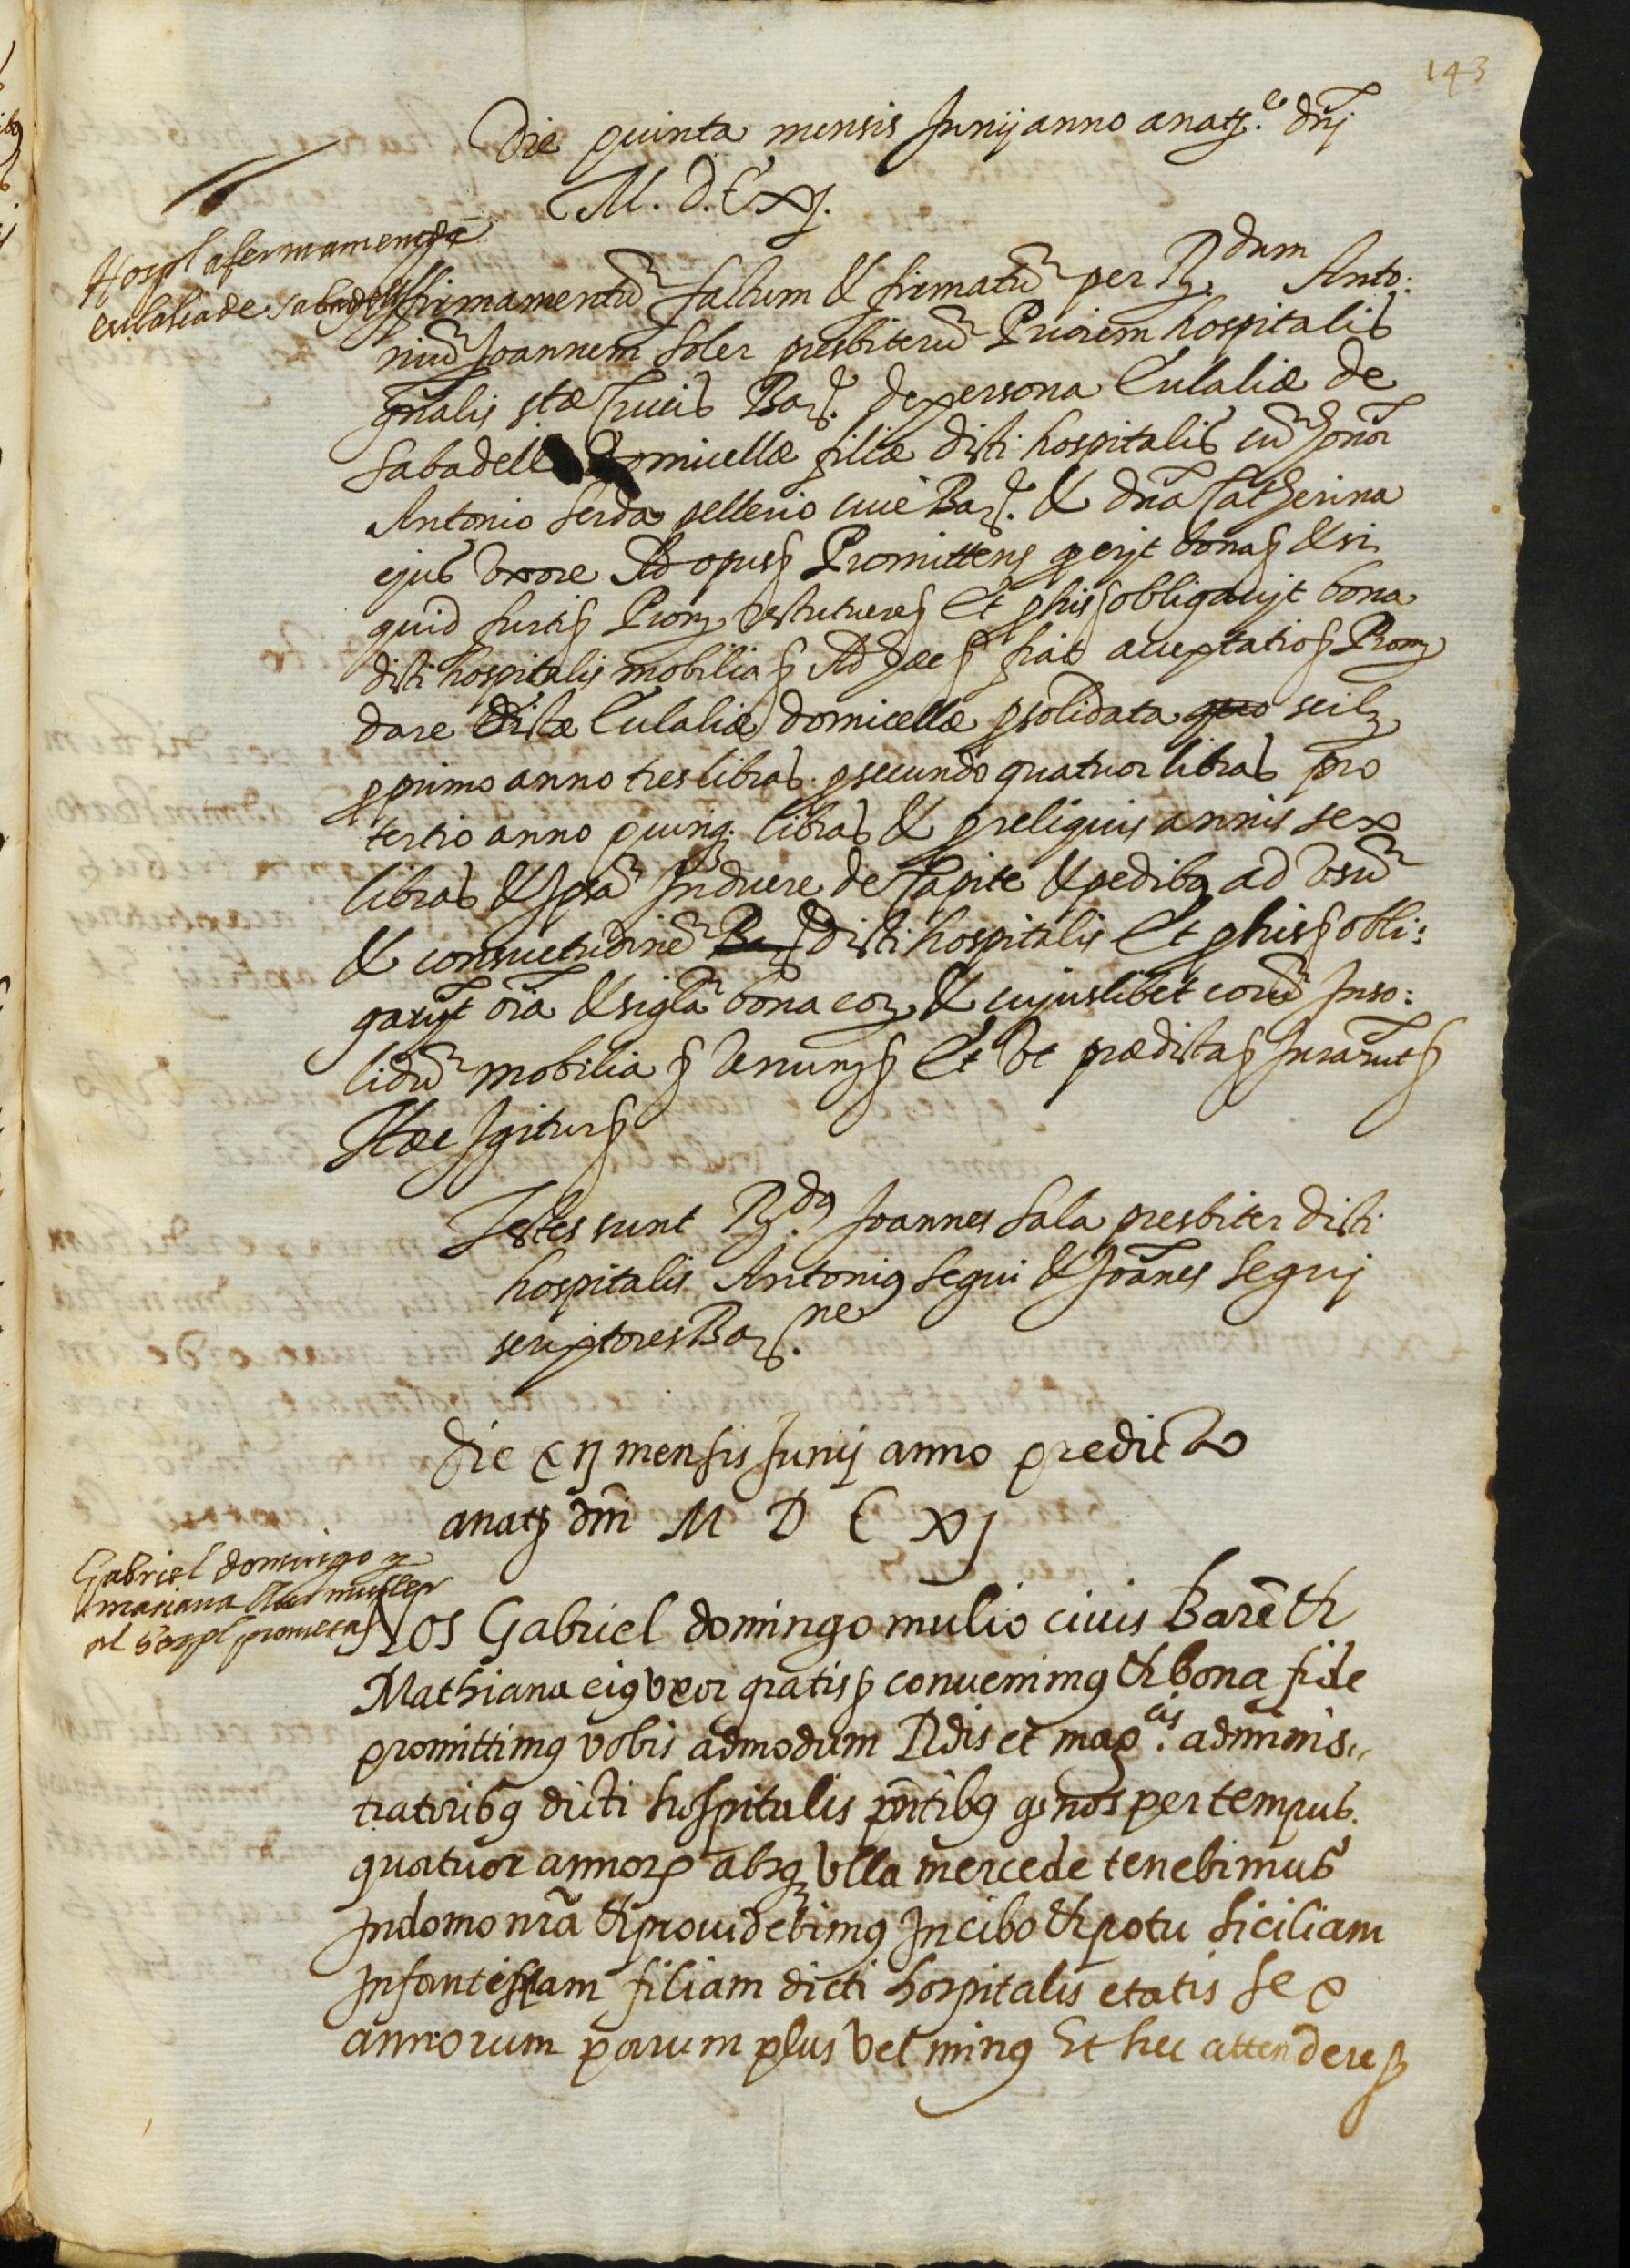 143
Die quinta mensis Junij anno a natẽ dñj
M. D. C xj.
Hospl afermament de
eulalia de sabadell
Affirmamentũ factum & firmatũ per Rdum Anto:
niũ Joannem Soler presbiterũ Priorem hospitalis
gñalis stæ Crucis Bar. de persona Eulaliæ de
Sabadell Domicellæ filiæ dicti hospitalis cũ honor
Antonio Serda vellerio cive Bar. & dña Catherina
ejus uxore Ad opus Promittens q erit bona & si
quid furtis Prom restituere Et p his obligavit bona
dicti hospitalis mobilia Ad hæc fiat acceptatio Prom
dare dictæ Eulaliæ domicellæ p solidata scil
p primo anno tres libras. p secundo quatuor libras pro
tertio anno quinq. libras & p reliquis annis sex
libras & ipsã Induere de Capite & pedibq ad usũ
& consuetudinẽ dicti hospitalis Et p his obli:
garũt oĩa & siglã bona eor & cujuslibet eorũ Inso:
lidũ mobilia Renun Et ut prædicta Jurarũt
Hæc Igitur
Testes sunt Rdq Joannes Sala presbiter dicti
hospitalis Antoniq Segui & Joãnes Seguj
scriptores Barne
Die xij mensis Junij anno predicto
a nat dñi M D C xj
Gabriel domingo y
mariana sa muller
al Hospl prometa
Nos Gabriel domingo mulio civis Barẽ &
Mathiana eiq uxor gratis convenimq & bona fide
promittimq vobis admodum Rdis et mag.cis adminis,,
tratoribq dicti hospitalis pñtibq q nos per tempus
quatuor annor absq ulla mercede tenebimus
In domo nrã & providebimq In cibo & potu Siciliam
Infantissam filiam dicti hospitalis etatis sex
annorum parum plus vel minq Et hec attendere